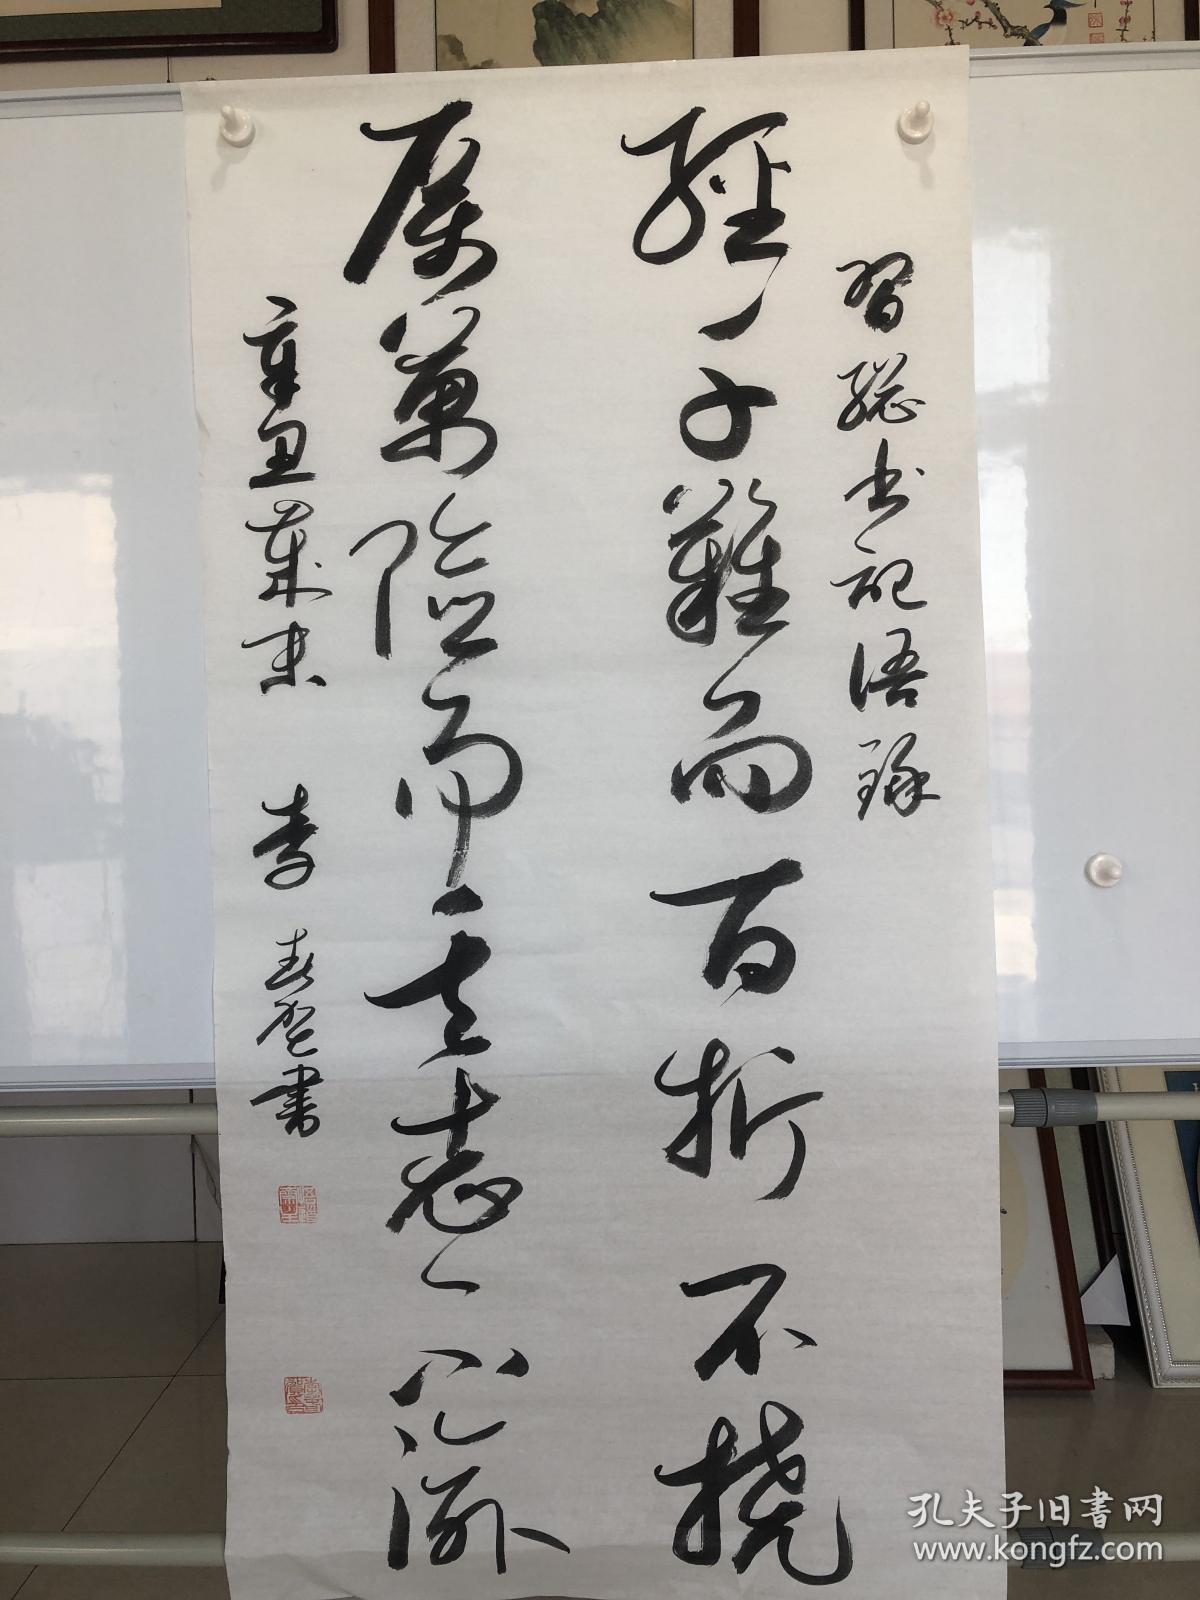 習總书記语録
經千難而百折不撓
歷萬險而矢志不渝
辛丑歲末 李春書
孔夫子旧書网
www.kongfz.com